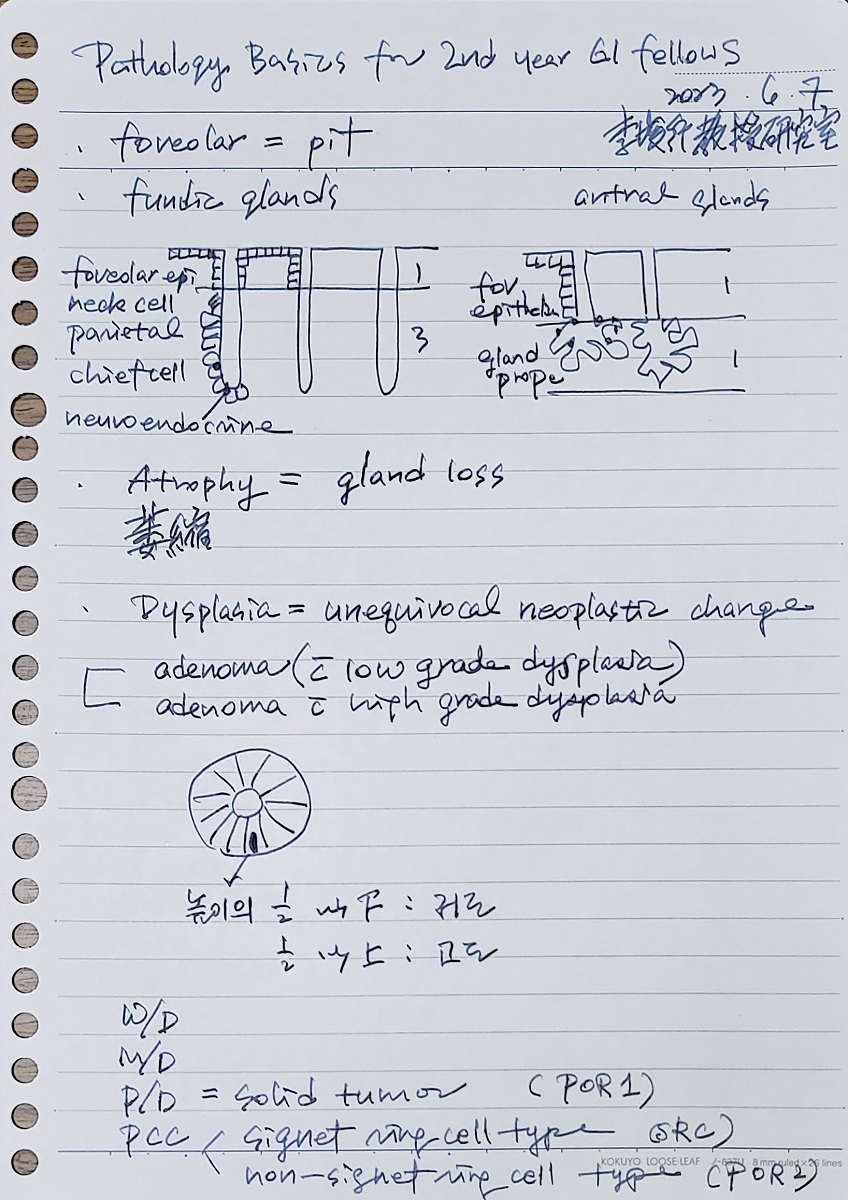 Pathology Basics for 2nd year GI fellows
2023.6.7
· foveolar = pit
李埈行教授研究室
· fundic glands
antral glands
foveolar epi
neck cell
parietal
chief cell
neuroendocrine
1
3
fov.
epithelium
gland
prope
1
1
· Atrophy = gland loss
萎縮
· Dysplasia = unequivocal neoplastic change
adenoma (c̄ low grade dysplasia)
adenoma c̄ high grade dysplasia
높이의 1/2 以下 : 저도
1/2 以上 : 고도
W/D
M/D
P/D = solid tumor (POR1)
PCC < signet ring cell type (SRC)
non-signet ring cell type (POR2)
KOKUYO LOOSE-LEAF 8 mm ruled×26 lines